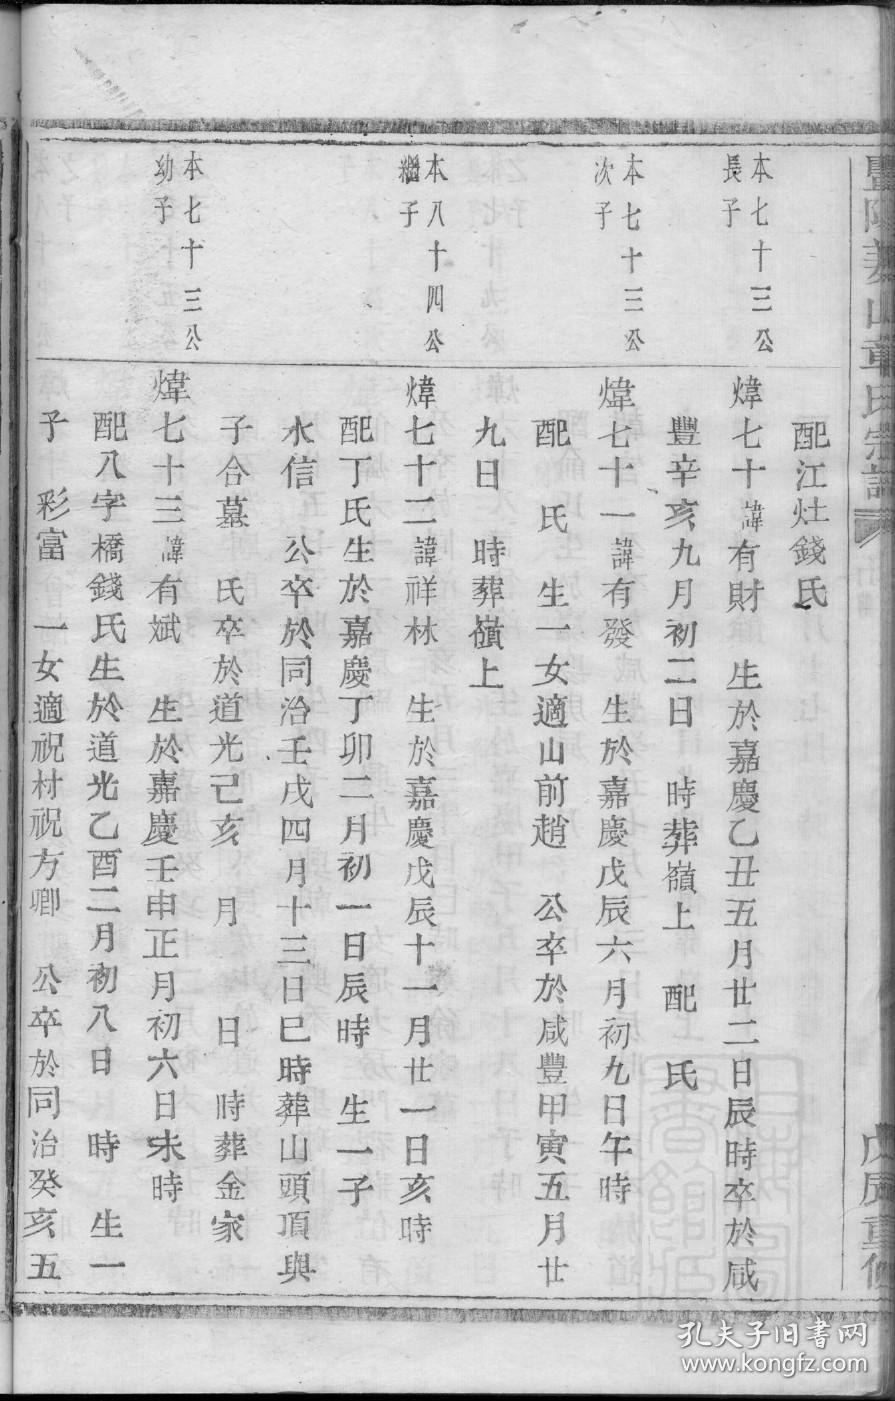 暨陽義山章氏宗譜
戊辰重修
配江灶錢氏
本七十三公
長子
煒七十諱有財　生於嘉慶乙丑五月廿二日辰時卒於咸
豐辛亥九月初二日　時葬嶺上　配　氏
本七十三公
次子
煒七十一諱有發　生於嘉慶戊辰六月初九日午時
配　氏　生一女適山前趙　公卒於咸豐甲寅五月廿
九日　時葬嶺上
本八十四公
繼子
煒七十二諱祥林　生於嘉慶戊辰十一月廿一日亥時
配丁氏生於嘉慶丁卯二月初一日辰時　生一子
水信　公卒於同治壬戌四月十三日巳時葬山頭頂與
子合墓　氏卒於道光己亥　月　日　時葬金家
本七十三公
幼子
煒七十三諱有斌　生於嘉慶壬申正月初六日未時
配八字橋錢氏生於道光乙酉二月初八日　時　生一
子　彩富　一女適祝村祝方卿　公卒於同治癸亥五
孔夫子旧书网
www.kongfz.com